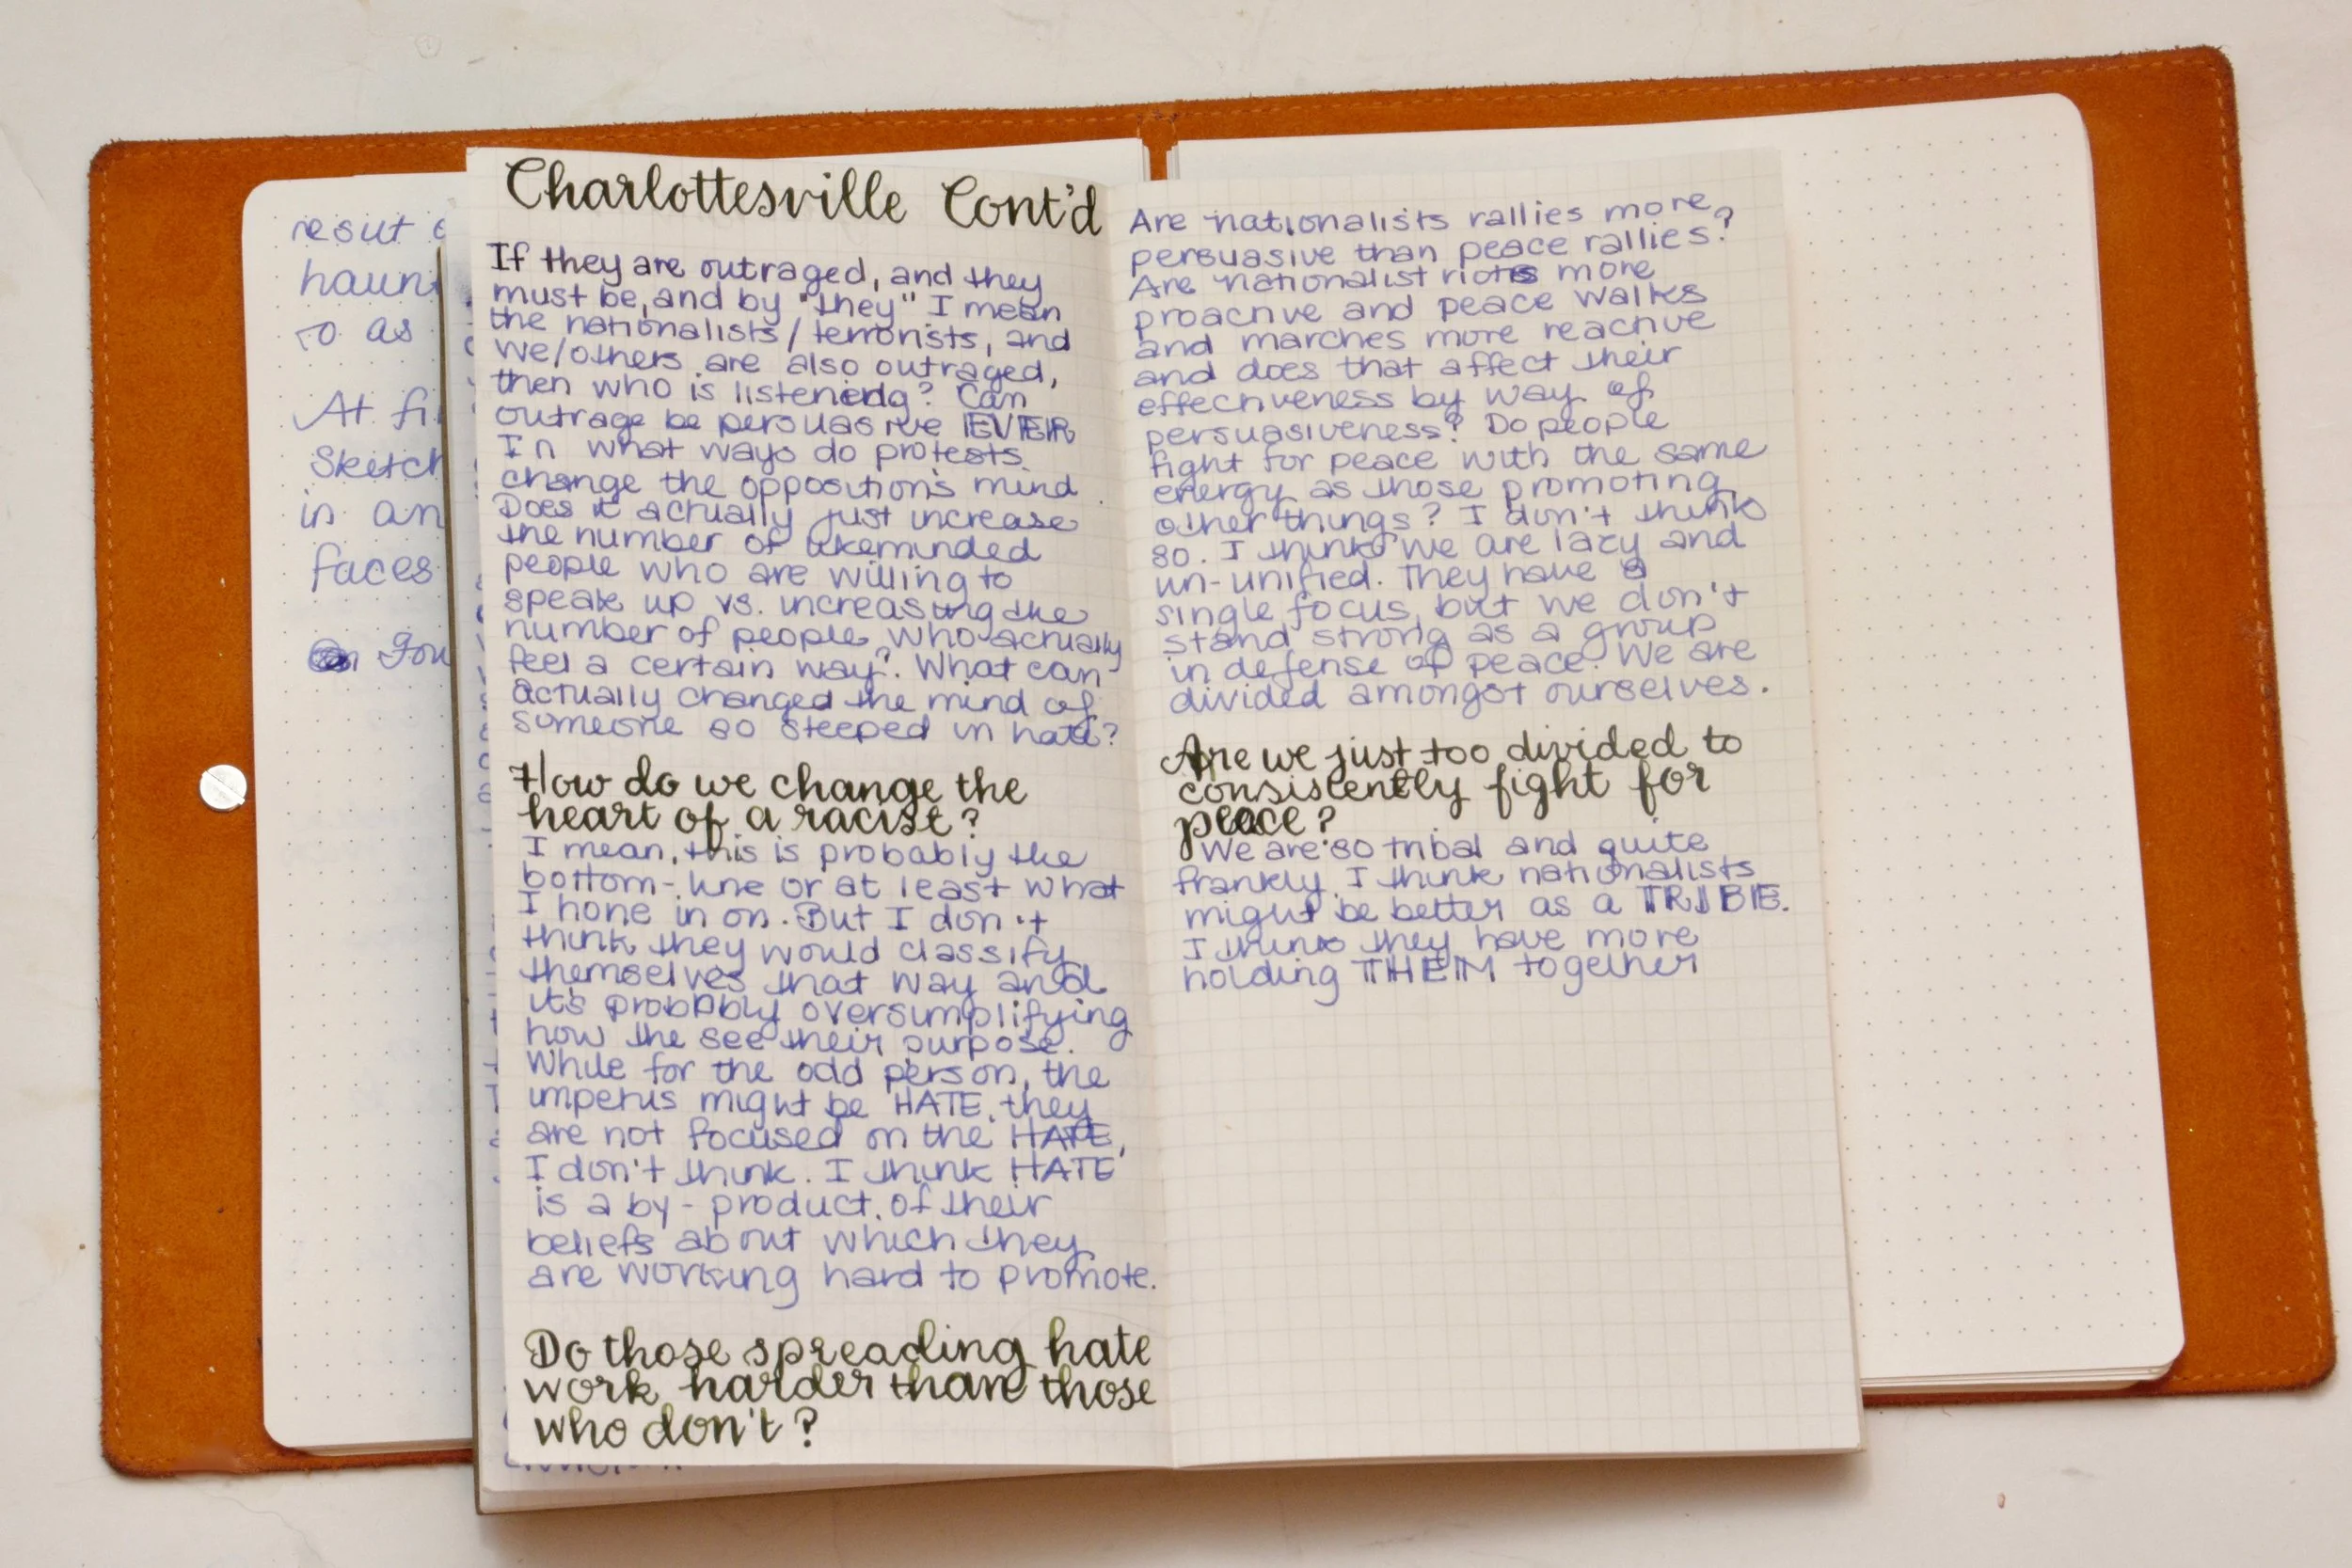 Charlottesville Cont'd
If they are outraged, and they
must be, and by "they" I mean
the nationalists / terrorists, and
we/others are also outraged,
then who is listening? Can
outrage be persuasive EVER
In what ways do protests
change the opposition's mind.
Does it actually just increase
the number of likeminded
people who are willing to
speak up vs. increasing the
number of people who actually
feel a certain way? What can
actually changed the mind of
someone so steeped in hate?
How do we change the
heart of a racist?
I mean, this is probably the
bottom-line or at least what
I hone in on. But I don't
think they would classify
themselves that way and
it's probably oversimplifying
how the see their purpose.
While for the odd person, the
impetus might be HATE, they
are not focused on the HATE,
I don't think. I think HATE
is a by-product of their
beliefs about which they
are working hard to promote.
Do those spreading hate
work harder than those
who don't?
Are nationalists rallies more
persuasive than peace rallies?
Are nationalist riots more
proactive and peace walks
and marches more reactive
and does that affect their
effectiveness by way of
persuasiveness? Do people
fight for peace with the same
energy as those promoting
other things? I don't think
so. I think we are lazy and
un-unified. They have a
single focus, but we don't
stand strong as a group
in defense of peace. We are
divided amongst ourselves.
Are we just too divided to
consistently fight for
peace?
We are so tribal and quite
frankly, I think nationalists
might be better as a TRIBE.
I think they have more
holding THEM together
resut
to as
At
in an
faces